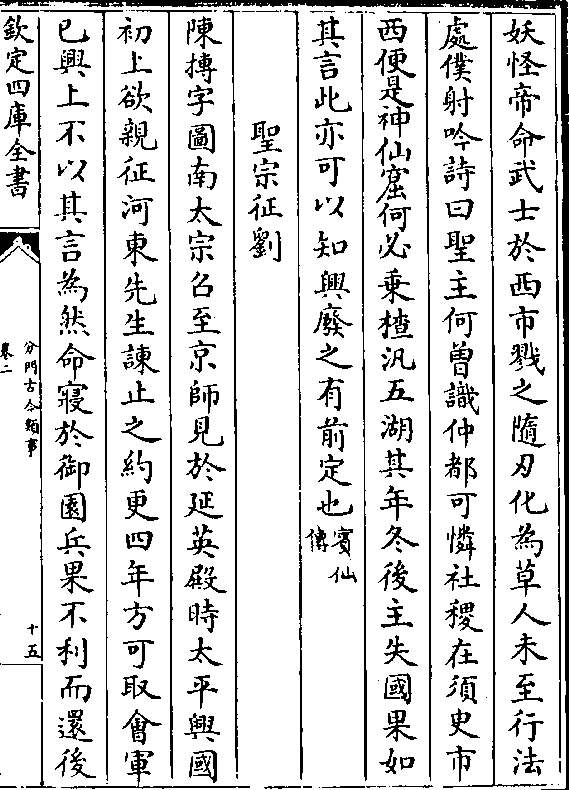 妖怪帝命武士於西市戮之隨刃化為草人未至行法
處僕射吟詩曰聖主何曾識仲都可憐社稷在須史市
西便是神仙窟何必乗楂汎五湖其年冬後主失國果如
其言此亦可以知興廢之有前定也賓仙
傳
聖宗征劉
陳摶字圖南太宗召至京師見於延英殿時太平興國
初上欲親征河東先生諫止之約更四年方可取會軍
已興上不以其言為然命寢於御園兵果不利而還後
欽定四庫全書
分門古今類事
卷二
十五